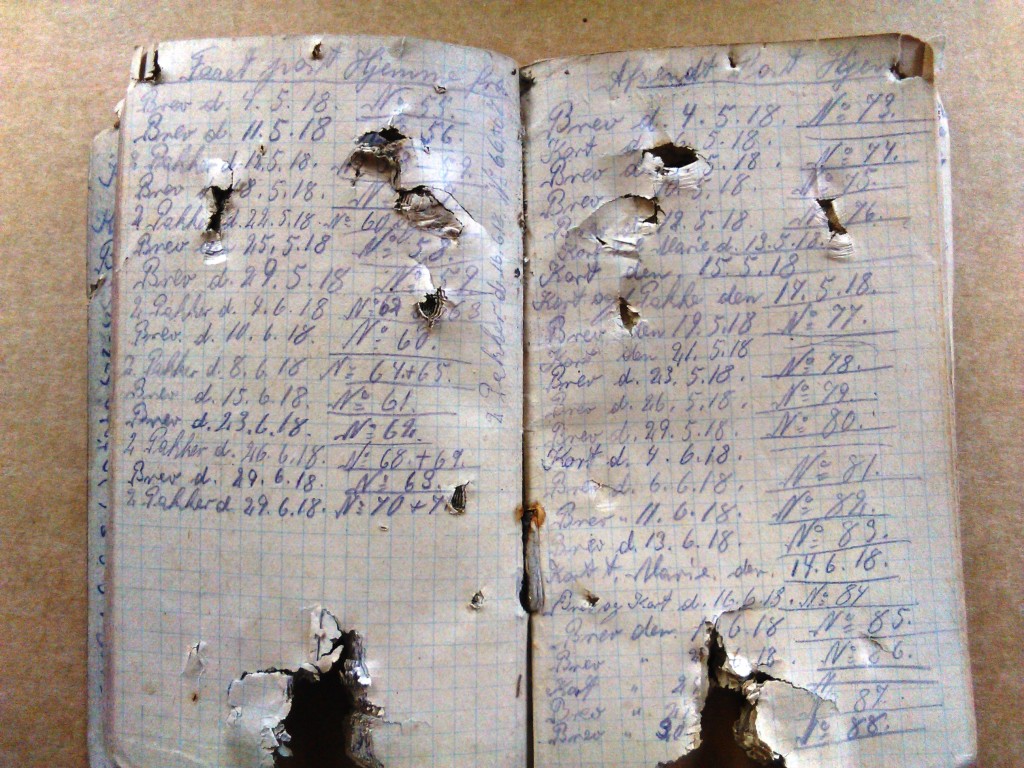 Faaet post Hjemme fra
Brev d. 4.5.18. No 55.
Brev d. 11.5.18 56
Pakker d. 12.5.18.
Brev 18.5.18. No
2 Pakker d. 22.5.18. No 60
Brev 25.5.18 No 58.
Brev d. 29.5.18 No 59
2 Pakker d. 4.6.18. No 62 63
Brev d. 10.6.18. No 60.
2 Pakker d. 8.6.18 No 64+65.
Brev d. 15.6.18. No 61.
Brev d. 23.6.18. No 62.
2 Pakker d. 26.6.18. No 68+69.
Brev d. 29.6.18. No 63.
2 Pakker d. 29.6.18. No 70+7
2 Pakker d. 16.6.18 No 66+67
Afsendt Post Hjem
Brev d. 4.5.18. No 73.
Kort d. 6.5.18.
Brev d. 5.18. No 74.
Brev 5.18. No 75.
12.5.18 76.
Marie d. 13.5.18.
Kort den 15.5.18
Kort og Pakke den 17.5.18.
Brev den 19.5.18 No 77.
Kort den 21.5.18
Brev d. 23.5.18. No 78.
Brev d. 26.5.18. No 79.
Brev d. 29.5.18 No 80.
Kort d. 4.6.18.
Brev d. 6.6.18. No 81.
Brev " 11.6.18. No 82.
Brev d. 13.6.18. No 83.
Kort t. Marie den 14.6.18.
Brev og Kort d. 16.6.18. No 84
Brev den 6.18 No 85.
Brev " 18. No 86.
Kort " 2
Brev " 2 87.
Brev " 30 No 88.